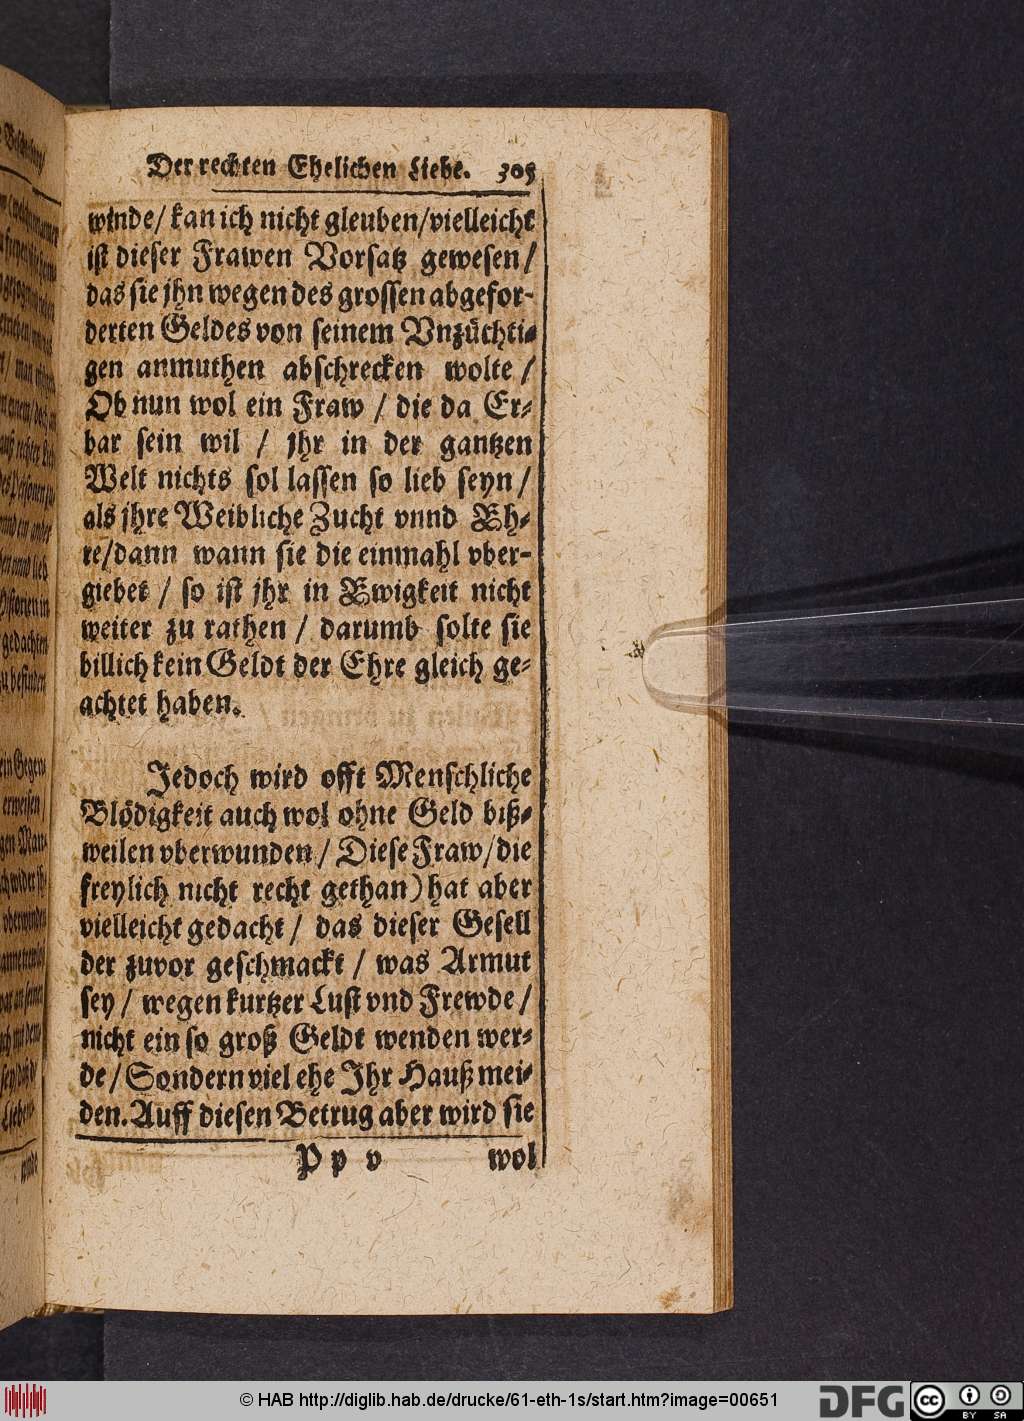 Der rechten Ehelichen Liebe. 305
winde/ kan ich nicht gleuben/vielleicht
ist dieser Frawen Vorsatz gewesen/
das sie jhn wegen des grossen abgefor-
derten Geldes von seinem Vnzüchti-
gen anmuthen abschrecken wolte /
Ob nun wol ein Fraw / die da Er-
bar sein wil / jhr in der gantzen
Welt nichts sol lassen so lieb seyn/
als jhre Weibliche Zucht vnnd Eh-
re/dann wann sie die einmahl vber-
giebet / so ist jhr in Ewigkeit nicht
weiter zu rathen / darumb solte sie
billich kein Geldt der Ehre gleich ge-
achtet haben.
Jedoch wird offt Menschliche
Blödigkeit auch wol ohne Geld biß-
weilen vberwunden/ Diese Fraw/die
freylich nicht recht gethan) hat aber
vielleicht gedacht/ das dieser Gesell
der zuvor geschmackt / was Armut
sey/ wegen kurtzer Lust vnd Frewde/
nicht ein so groß Geldt wenden wer-
de/ Sondern viel ehe Jhr Hauß mei-
den. Auff diesen Betrug aber wird sie
P p v wol
© HAB http://diglib.hab.de/drucke/61-eth-1s/start.htm?image=00651
DFG
cc BY SA